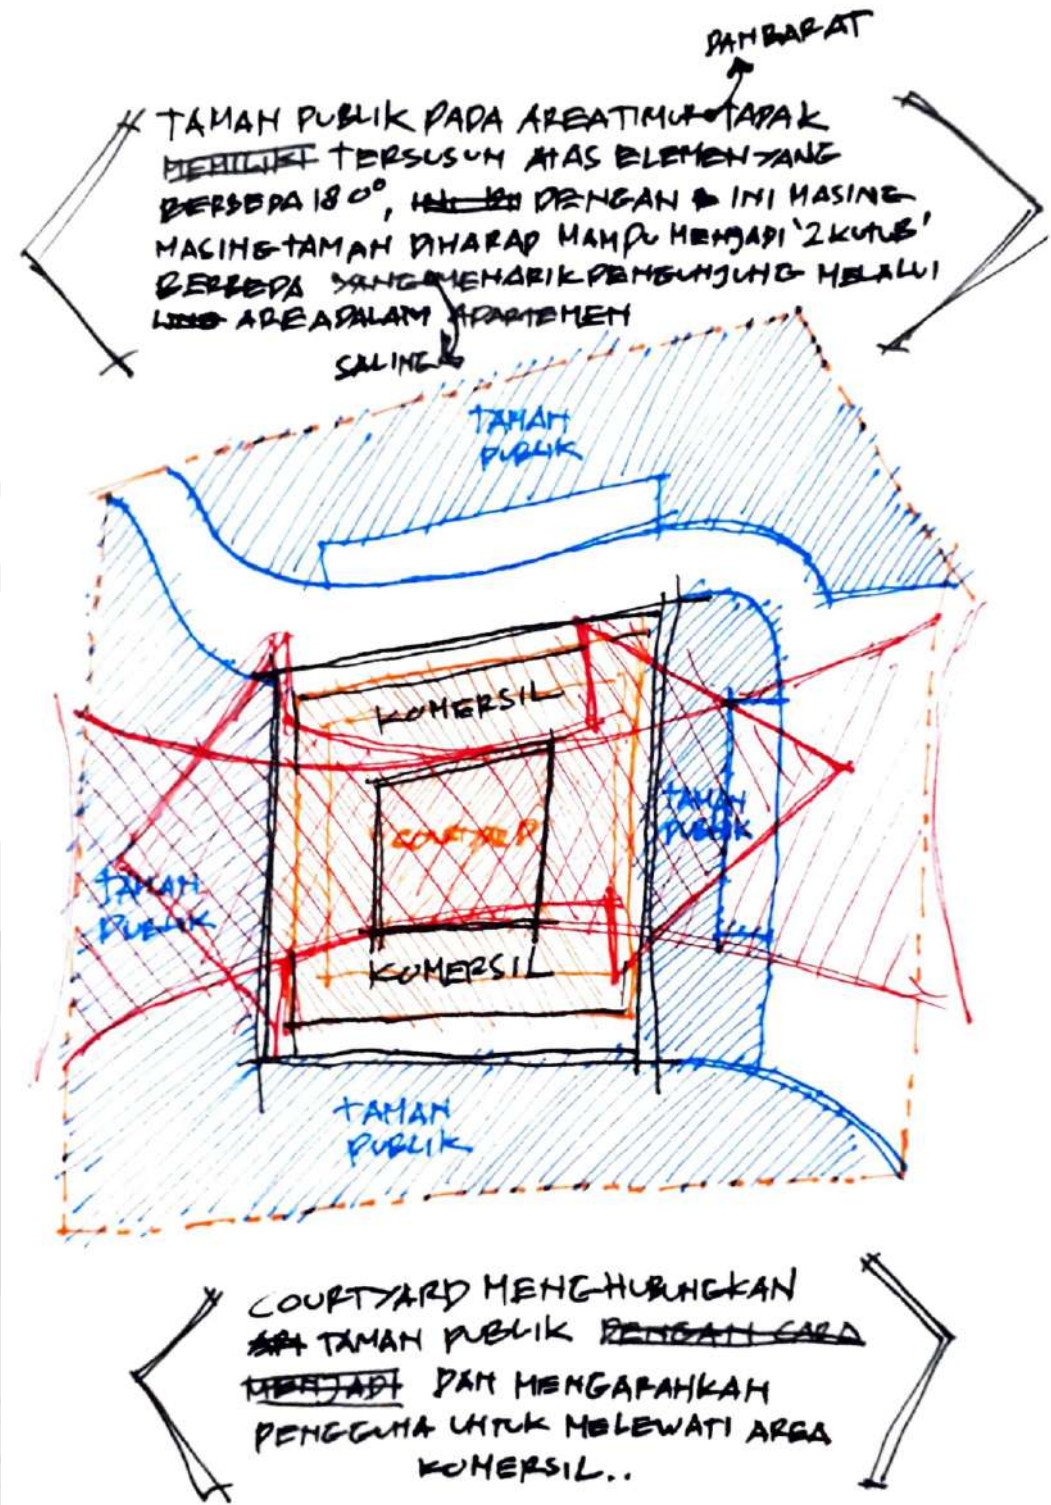 DAN BARAT
TAMAN PUBLIK PADA AREA TIMUR TAPAK
MEMILIKI TERSUSUN ATAS ELEMEN YANG
BERBEDA 180°, DENGAN INI MASING
MASING TAMAN DIHARAP MAMPU MENJADI '2 KUTUB'
BERBEDA YANG MENARIK PENGUNJUNG MELALUI
AREA DALAM APARTEMEN
SALING
TAMAN
PUBLIK
KOMERSIL
COURTYARD
TAMAN
PUBLIK
TAMAN
PUBLIK
KOMERSIL
TAMAN
PUBLIK
COURTYARD MENGHUBUNGKAN
TAMAN PUBLIK DENGAN CARA
MENJADI DAN MENGARAHKAN
PENGGUNA UNTUK MELEWATI AREA
KOMERSIL..